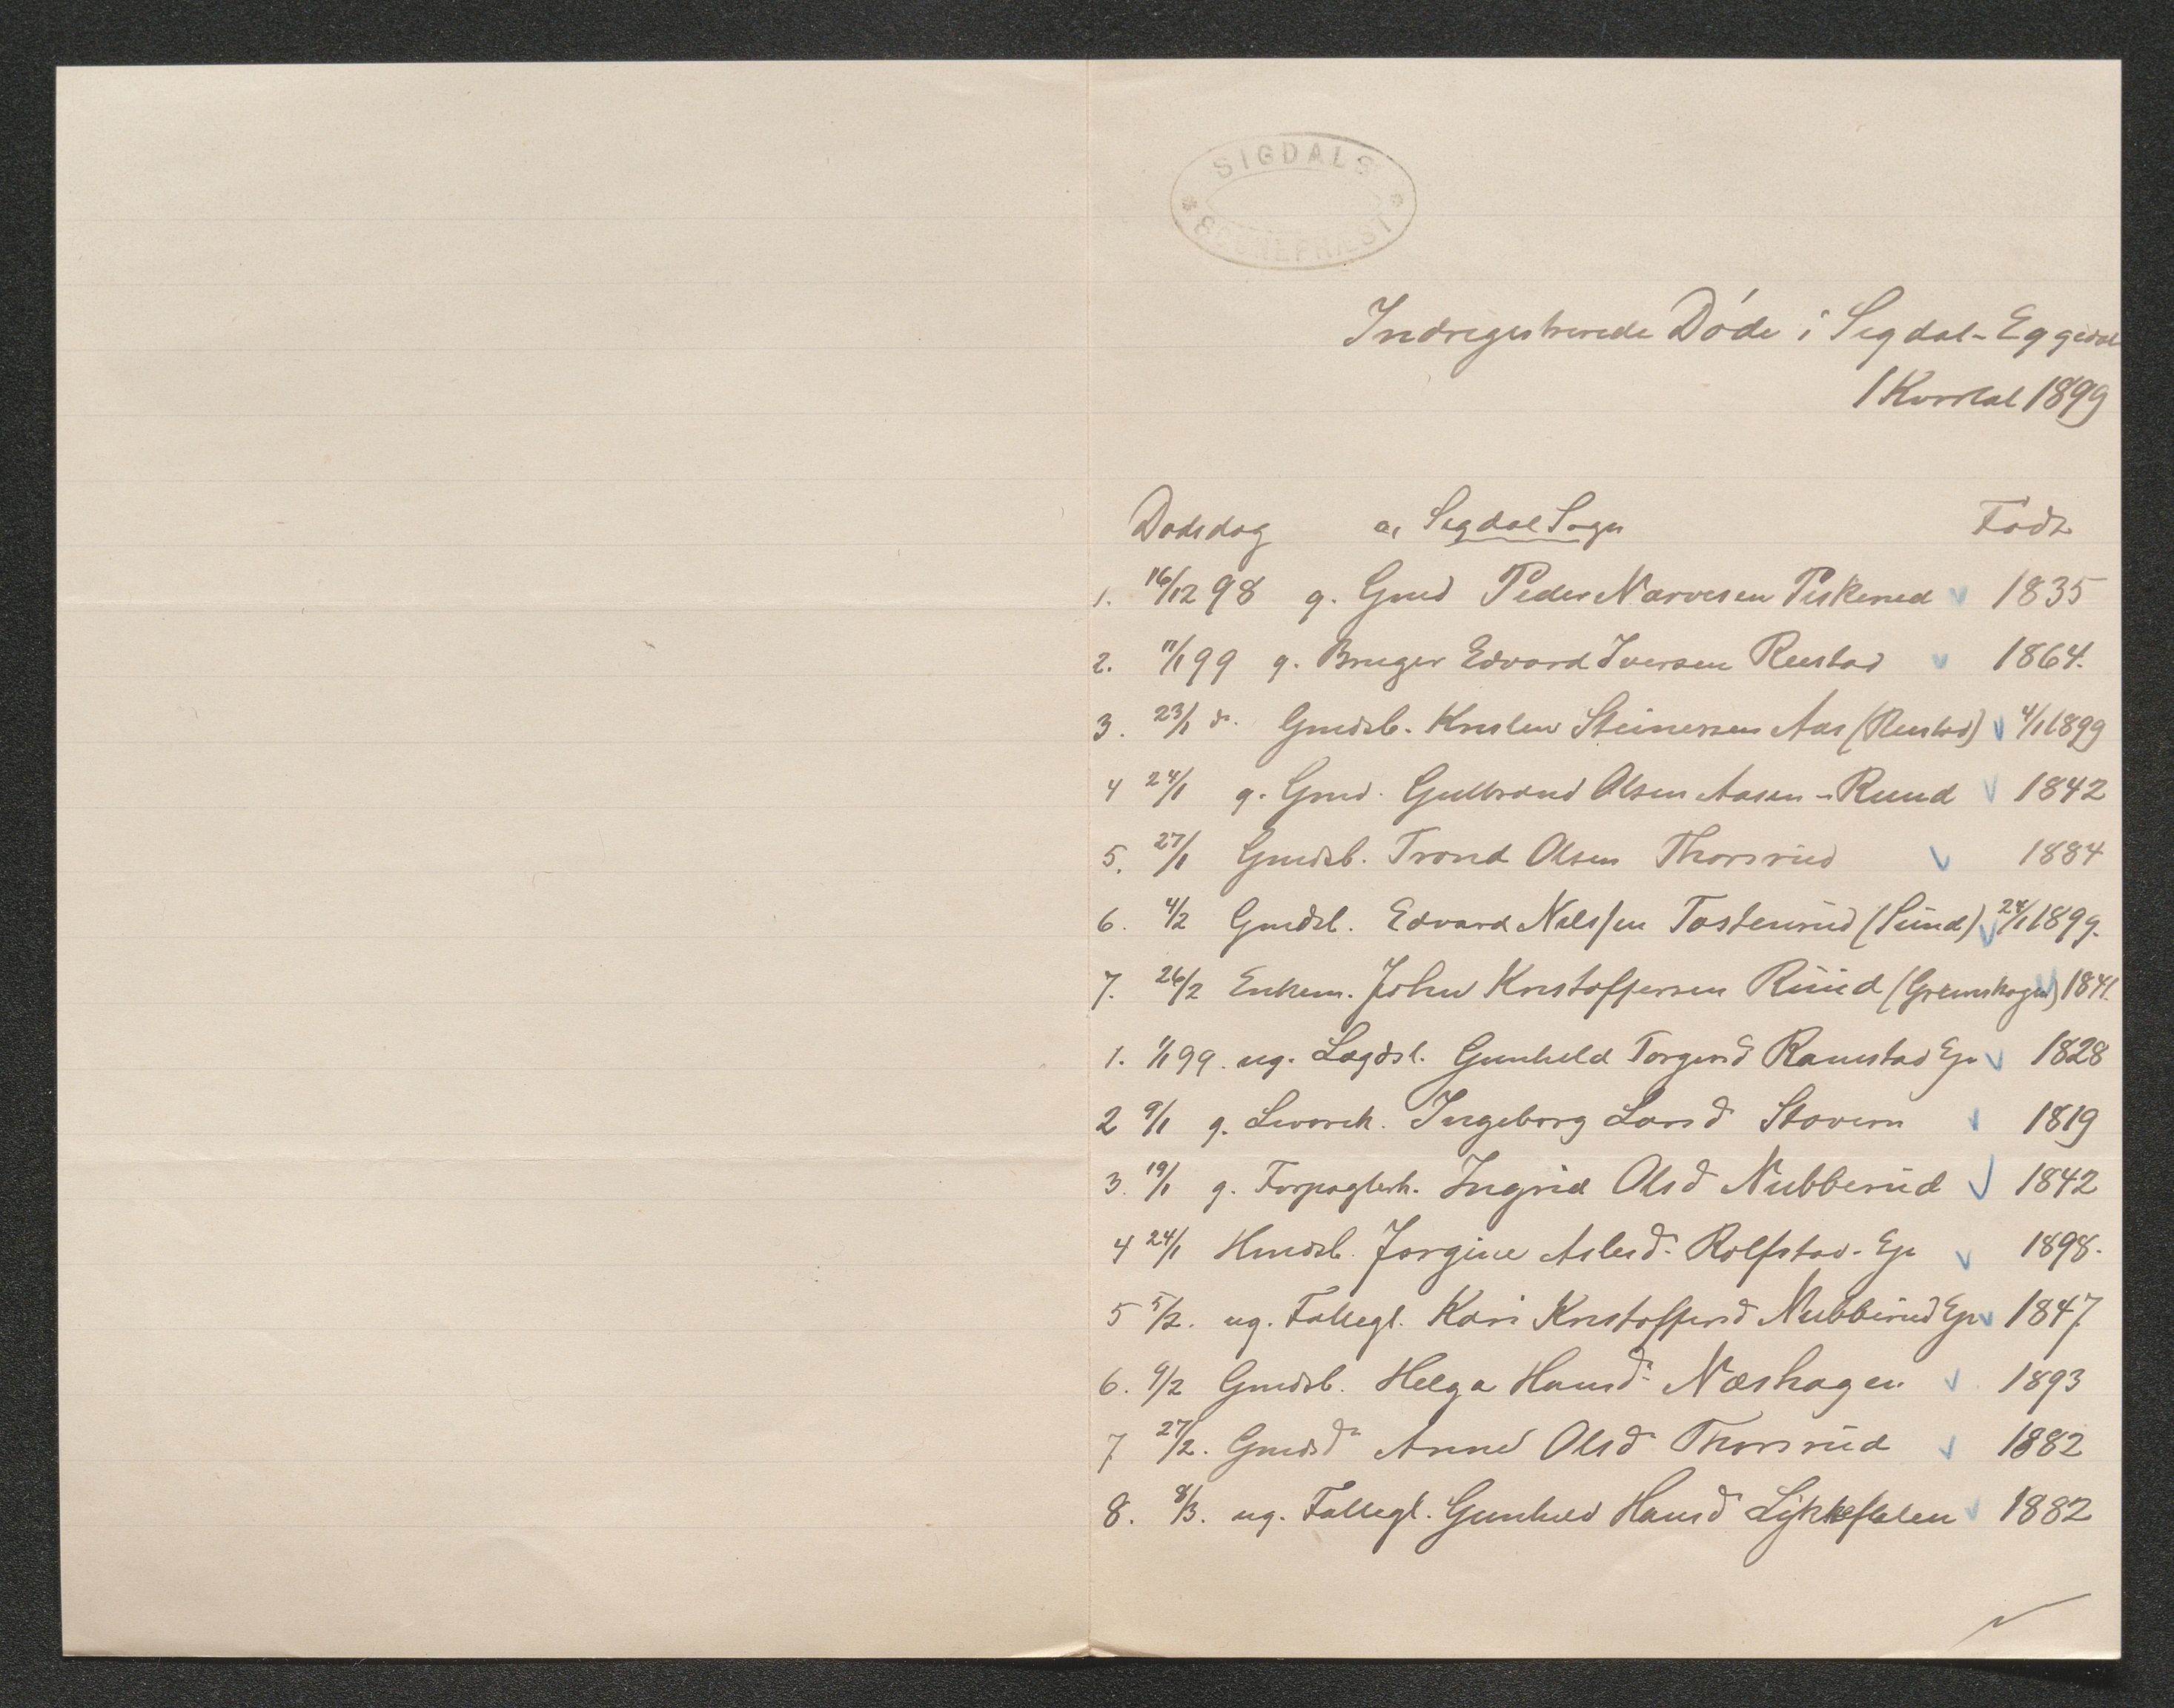 SIGDALS
SOGNEPRÆST
Indregistrerede Døde i Sigdal-Eggedal
1 Kvartal 1899
Dødsdag a, Sigdal Sogn Født
1. 16/12 98 g. Gmd Peder Narvesen Piskerud 1835
2. 11/1 99 g. Bruger Edvard Iversen Reistad 1864.
3. 23/1 Gmdsb. Kristen Steinersen Aas (Reistad) 4/1 1899
4 24/1 g. Gmd. Gulbrand Olsen Aasen-Ruud 1842
5. 27/1 Gmdsb. Trond Olsen Thorsrud 1884
6. 4/2 Gmdsb. Edvard Nilssen Tostenrud (Sund) 24/1 1899.
7. 26/2 Enkem. John Kristoffersen Ruud (Grønskogen) 1841.
1. 1/1 99. ug. Lægdsl. Gunhild Torgersd Ramstad Ej. 1828
2 9/1 g. Livørek. Ingeborg Larsd Stovern 1819
3. 19/1 g. Forpagterk. Ingrid Olsd Nubberud 1842
4 24/1 Hmdsb. Jørgine Aslesd. Rolfstad. Ej. 1898.
5 5/2. ug. Fattigl. Kari Kristoffersd Nubberud Ej. 1847
6. 9/2 Gmdsb. Helga Hansd. Næshagen 1893
7 27/2. Gmdsd Anne Olsd Thorsrud 1882
8. 8/3. ug. Fattigl. Gunhild Hansd Lykkeflaten 1882